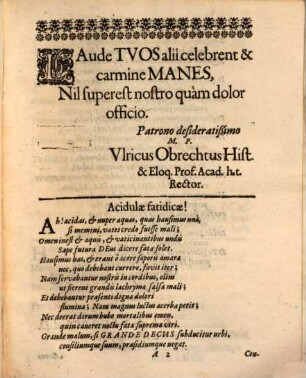 LAude TVOS alii celebrent &
carmine MANES,
Nil superest nostro quàm dolor
officio.
Patrono desideratissimo
M. P.
Vlricus Obrechtus Hist.
& Eloq. Prof. Acad. h.t.
Rector.
Acidulæ fatidicæ!
Ah! acidas, & nuper aquas, quas hausimus unà,
si memini, vates crede fuisse mali;
Omen inest & aquis, & vaticinantibus undis
Sape futura DEus dicere fata solet.
Hausimus has, & erant ô acre sapore amara
nec, quo debebant currere, favit iter;
Nam servabantur nostris in cordibus, olim
ut fierent grandis lachryma salsa mali;
Et debebantur præsenti digna dolori
flumina; Nam magnum luctus acerba petit;
Nec deerat dirum bubo mortalibus omen,
quin caneret noctu fata suprema viri.
Grande malum, si GRANDE DECUS subducitur urbi,
consiliumque suum, præsidiumque negat.
A 2